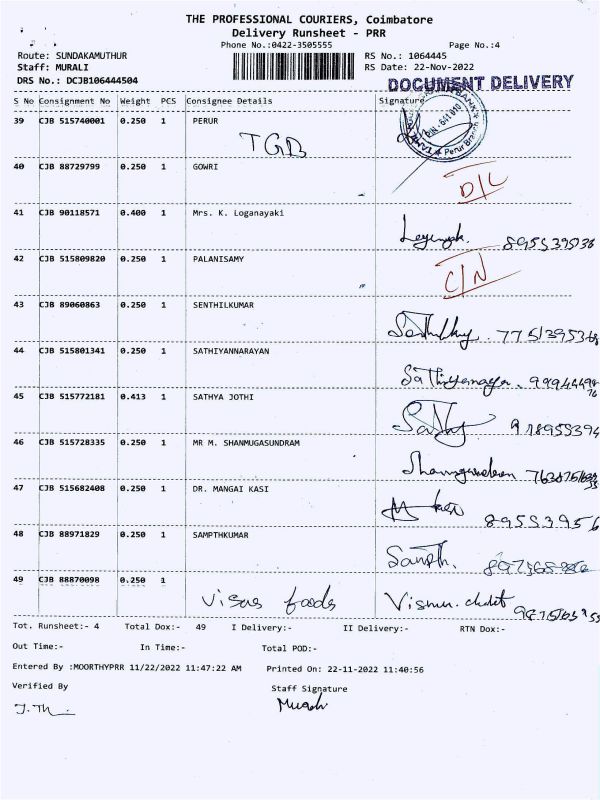 THE PROFESSIONAL COURIERS, Coimbatore
Delivery Runsheet - PRR
Phone No.:0422-3505555
Page No.:4
Route: SUNDAKAMUTHUR
RS No.: 1064445
Staff: MURALI
RS Date: 22-Nov-2022
DRS No.: DCJB106444504
DOCUMENT DELIVERY
S No Consignment No Weight PCS Consignee Details Signature
39 CJB 515740001 0.250 1 PERUR
TGB
Perur Branch
40 CJB 88729799 0.250 1 GOWRI
D/L
41 CJB 90118571 0.400 1 Mrs. K. Loganayaki
42 CJB 515809820 0.250 1 PALANISAMY
C/N
43 CJB 89060863 0.250 1 SENTHILKUMAR
44 CJB 515801341 0.250 1 SATHIYANNARAYAN
45 CJB 515772181 0.413 1 SATHYA JOTHI
46 CJB 515728335 0.250 1 MR M. SHANMUGASUNDRAM
47 CJB 515682408 0.250 1 DR. MANGAI KASI
48 CJB 88971829 0.250 1 SAMPTHKUMAR
Sampth.
49 CJB 88870098 0.250 1
foods
Tot. Runsheet:- 4 Total Dox:- 49 I Delivery:- II Delivery:- RTN Dox:-
Out Time:- In Time:- Total POD:-
Entered By :MOORTHYPRR 11/22/2022 11:47:22 AM Printed On: 22-11-2022 11:40:56
Verified By Staff Signature